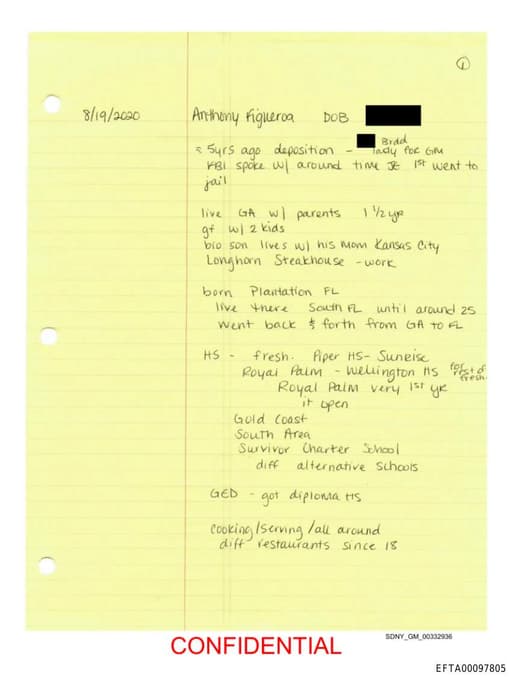 ①
8/19/2020 Anthony Figueroa DOB
≈ 5yrs ago deposition - Brad
lady for GM
FBI spoke w/ around time JE 1st went to
jail
live GA w/ parents 1 1/2 yr
gf w/ 2 kids
bio son lives w/ his mom Kansas City
Longhorn Steakhouse - work
born Plantation FL
live there South FL until around 25
went back & forth from GA to FL
HS - fresh. Piper HS - Sunrise
Royal Palm - Wellington HS for rest of fresh.
Royal Palm very 1st yr
it open
Gold Coast
South Area
Survivor Charter School
diff alternative schools
GED - got diploma HS
cooking/serving/all around
diff restaurants since 18
SDNY_GM_00332936
CONFIDENTIAL
EFTA00097805